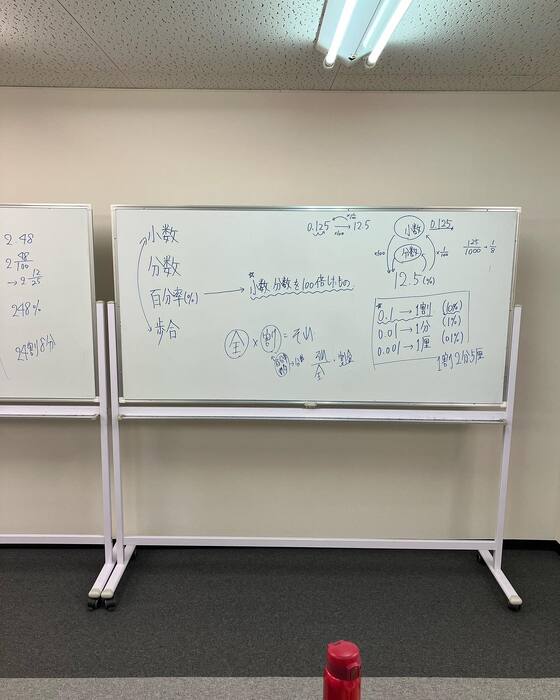 2.48
2 48/100
→ 2 12/25
248%
24割8分
小数
分数
百分率(%) → 小数 分数を100倍したもの
歩合
全 × 割 = それ
それ/全
0.125 12.5
×100
小数 0.125
分数 125/1000 = 1/8
×100
12.5 (%)
0.1 → 1割 (10%)
0.01 → 1分 (1%)
0.001 → 1厘 (0.1%)
1割2分5厘